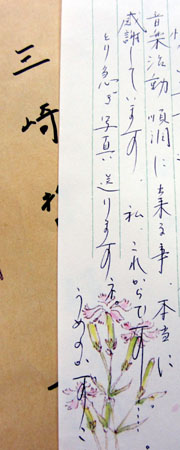 音楽活動 順調に出来る事、本当に
感謝しています。私、これからです…。
とり急ぎ写真送りますネ。
三崎